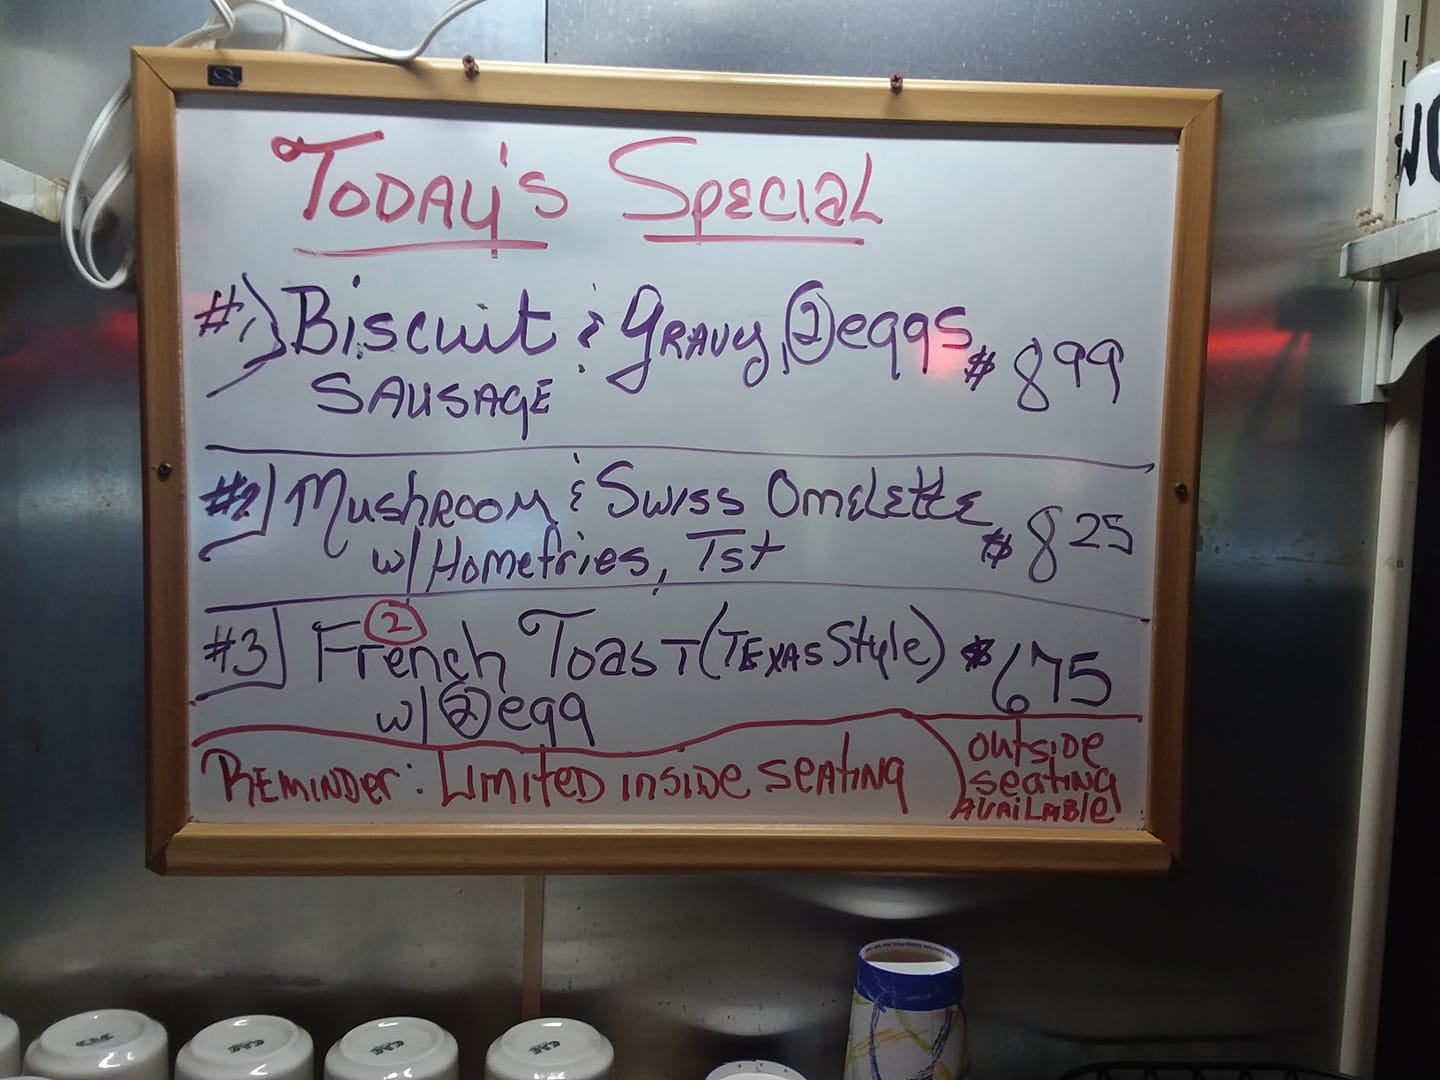 Today's Special
#1) Biscuit & Gravy, 2 eggs $8.99
Sausage
#2) Mushroom & Swiss Omelette $8.25
w/ Homefries, Tst
#3) 2 French Toast (Texas Style) $6.75
w/ 2 egg
Reminder: Limited inside seating
outside
seating
available